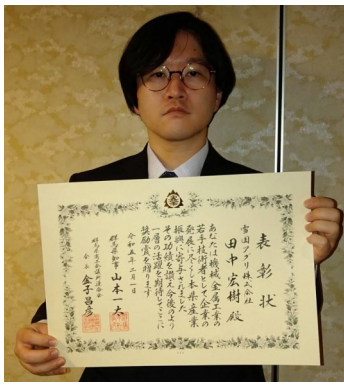 表彰状
雪国アグリ株式会社
田中宏樹殿
あなたは機械、金属工業の
若手技術者として企業の
発展に尽くし本県産業
振興に寄与されました
その功績を讃え今後のより
一層の活躍を期待してここに
奨励賞を贈ります
令和五年二月一日
群馬県知事山本一太
会長金子昌彦